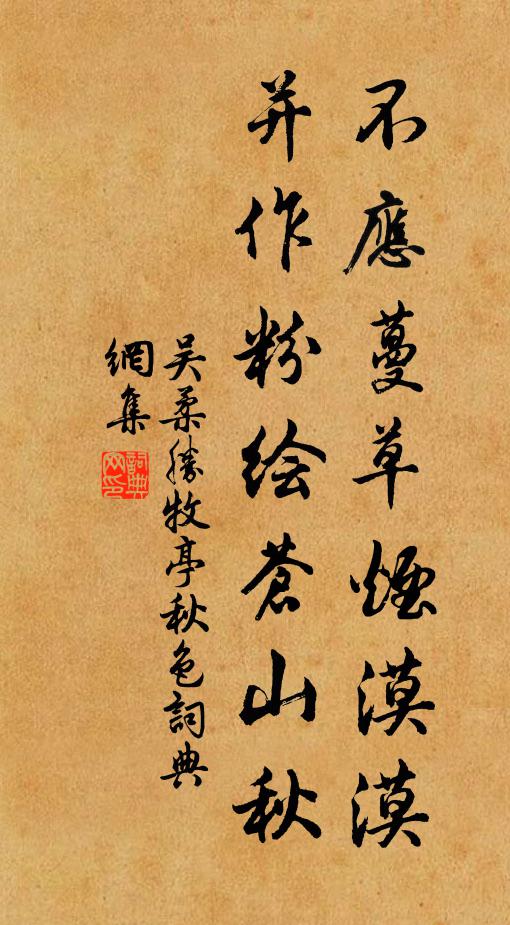 不應蔓草煙漠漠
并作粉绘蒼山秋
吴柔勝牧亭秋色詞典
網集
詞典网印